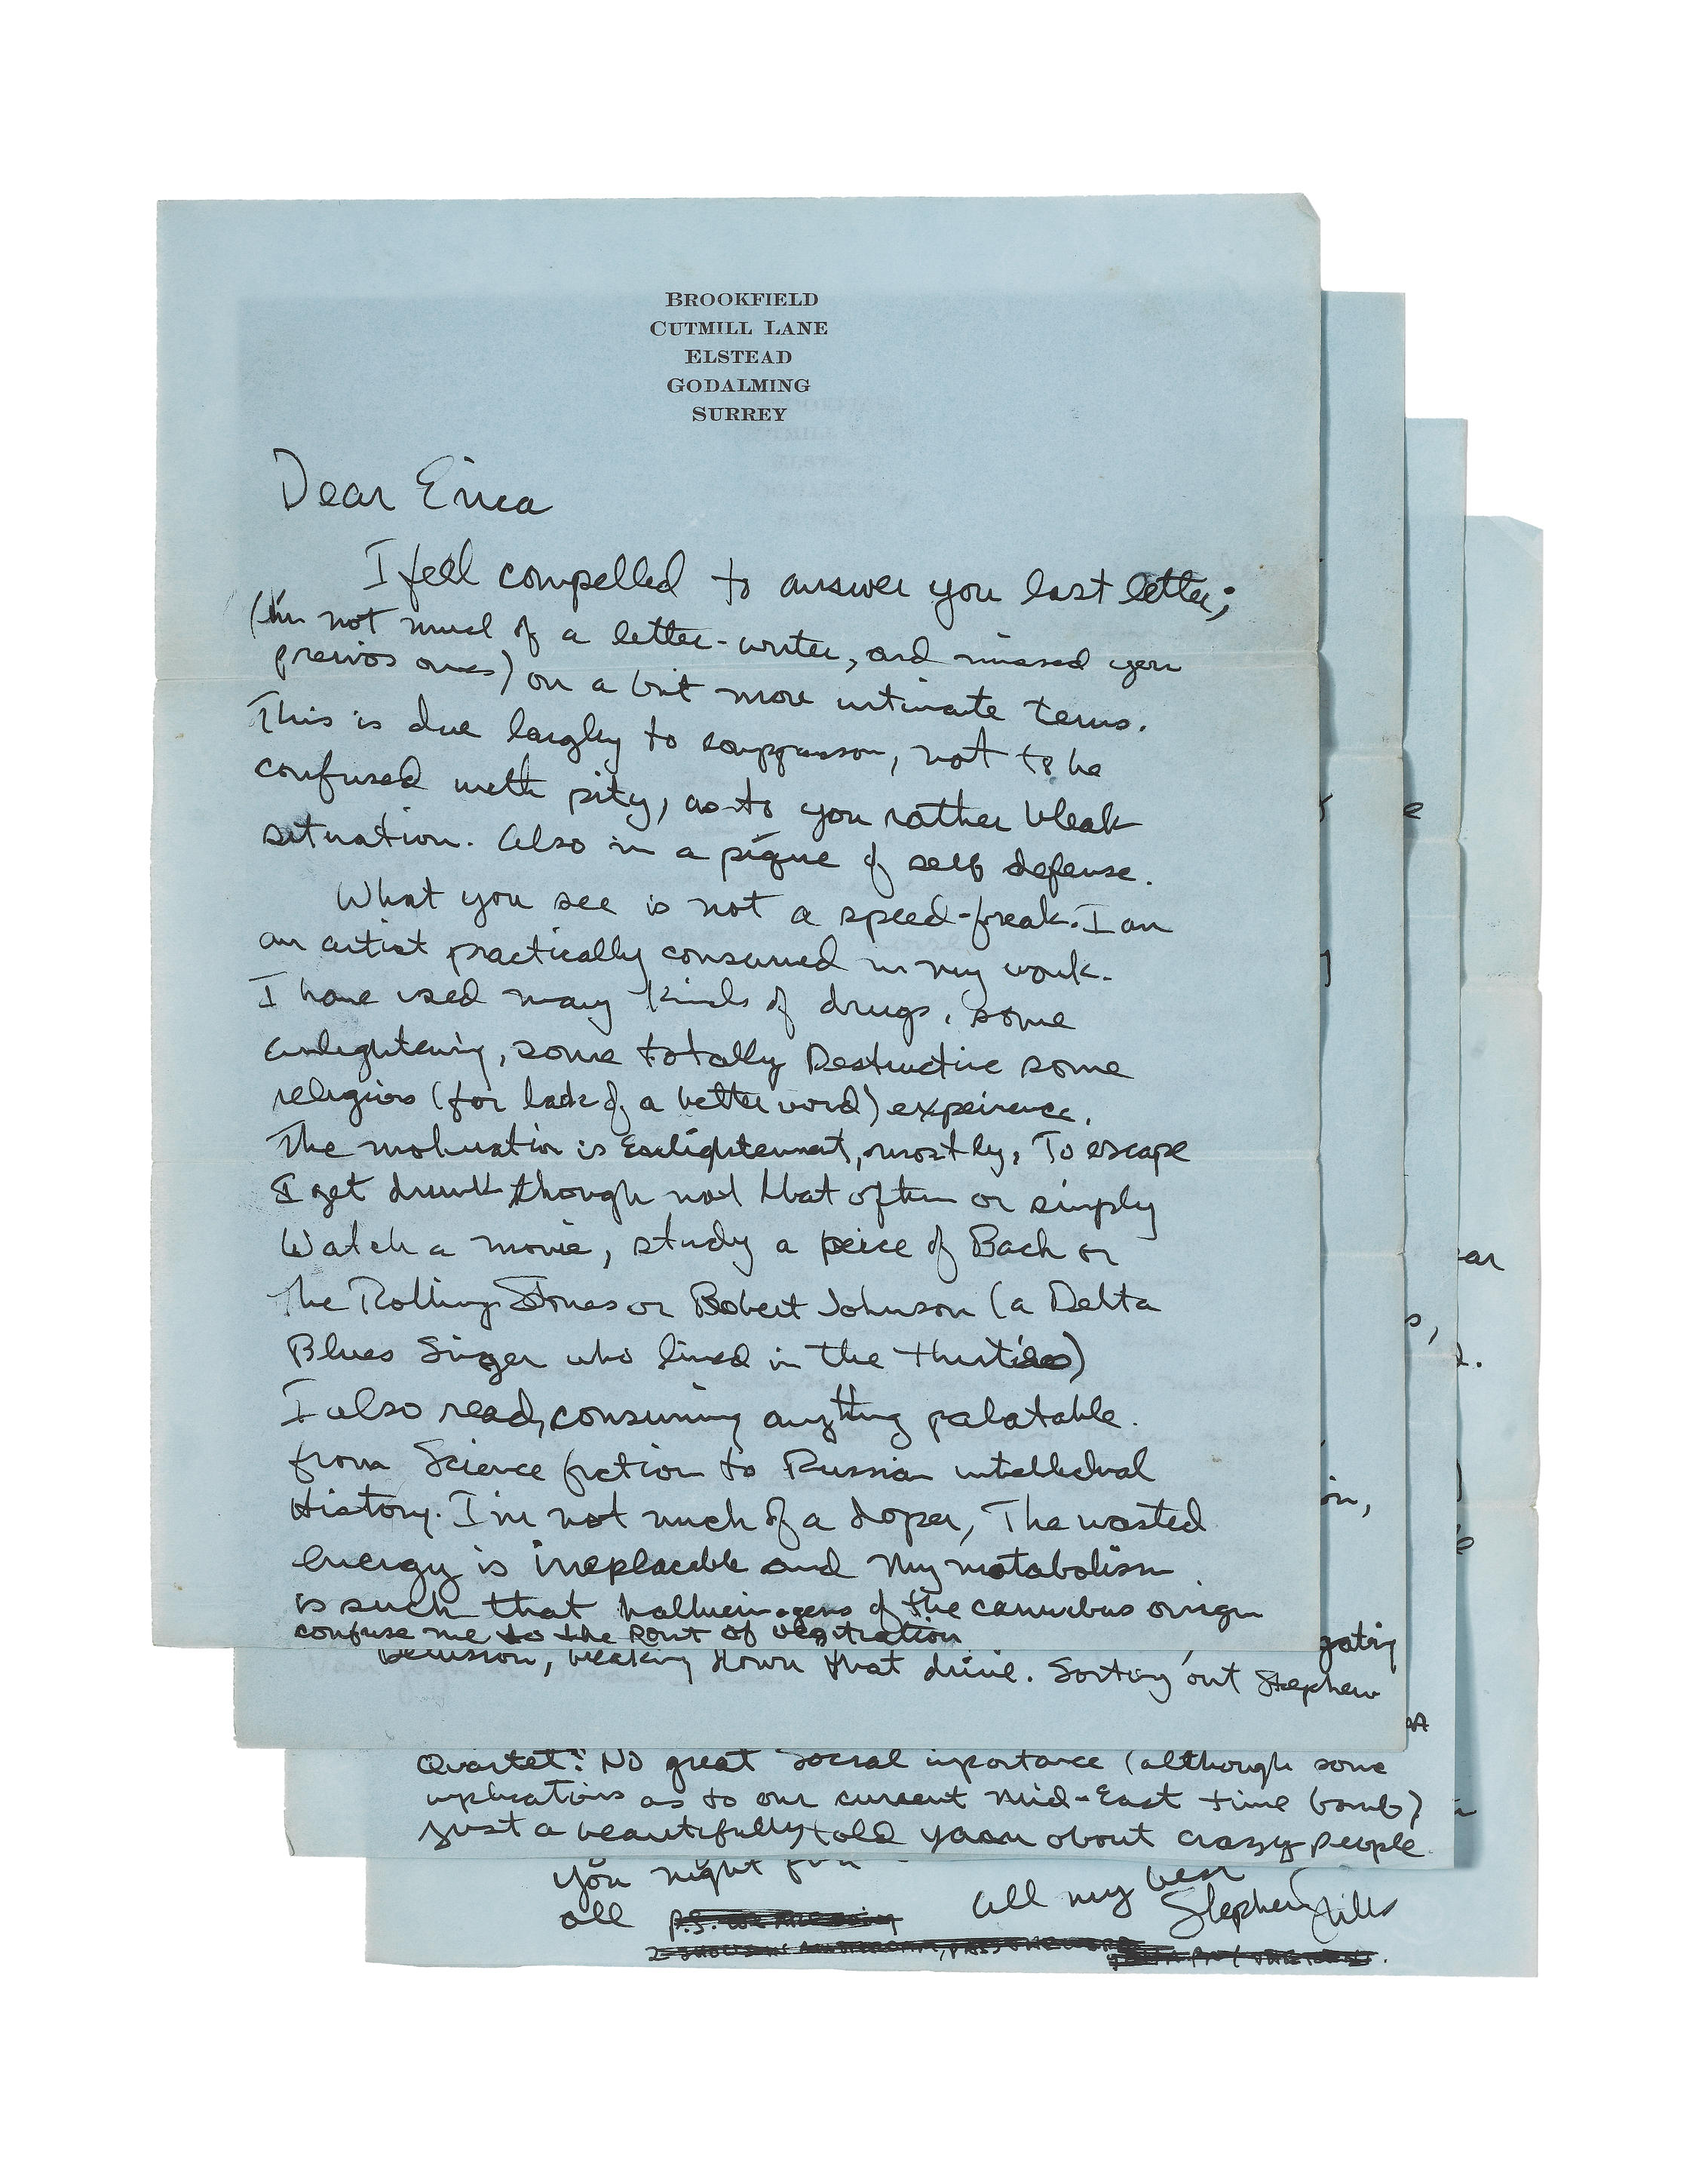 BROOKFIELD
CUTMILL LANE
ELSTEAD
GODALMING
SURREY
Dear Erica
I feel compelled to answer you last letter;
(I'm not much of a letter-writer, and missed you
previos ones) on a bit more intimate terms.
This is due largley to compassion, not to be
confused with pity, as to you rather bleak
situation. Also in a pique of self defense.
What you see is not a speed-freak. I am
an artist practically consumed in my work.
I have used many kinds of drugs, some
enlightening, some totally Destructive some
religios (for lack of a better word) expeirence.
The motivation is Enlightenment, mostly, To escape
I get drunk though not that often or simply
Watch a movie, study a peice of Bach or
The Rolling Stones or Robert Johnson (a Delta
Blues Singer who lived in the thirties)
I also read, consuming anything palatable.
from Science fiction to Russian intellectual
History. I'm not much of a doper, The wasted
energy is irreplacable and My metabolism
is such that hallucinogens of the cannibus origin
confuse me to the Point of vegitration
gatig
Delusion, breaking down that drive. Sorting out Stephen
Quartet? No great Social inportance (although some
inplications as to our current Mid-East time bomb)
just a beautifully told yarn about crazy people
you might
all
P.S. we are
all my best
Stephen Stills
ar
on,